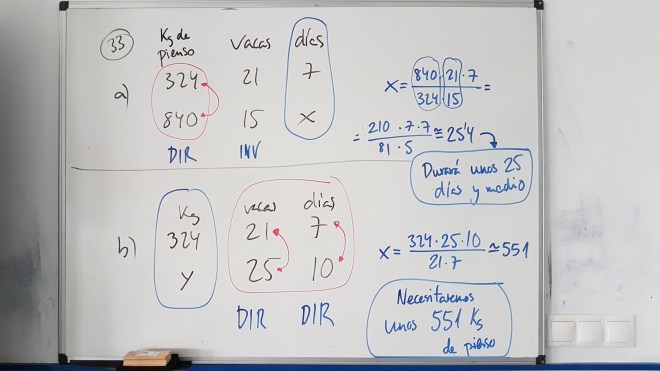 33
Kg de pienso vacas días
a) 324 21 7
840 15 x
DIR INV
x = 840·21·7 / 324·15 =
= 210·7·7 / 81·5 ≅ 25'4
Durará unos 25
días y medio
b) Kg vacas días
324 21 7
y 25 10
DIR DIR
x = 324·25·10 / 21·7 ≅ 551
Necesitaremos
unos 551 Kg
de pienso